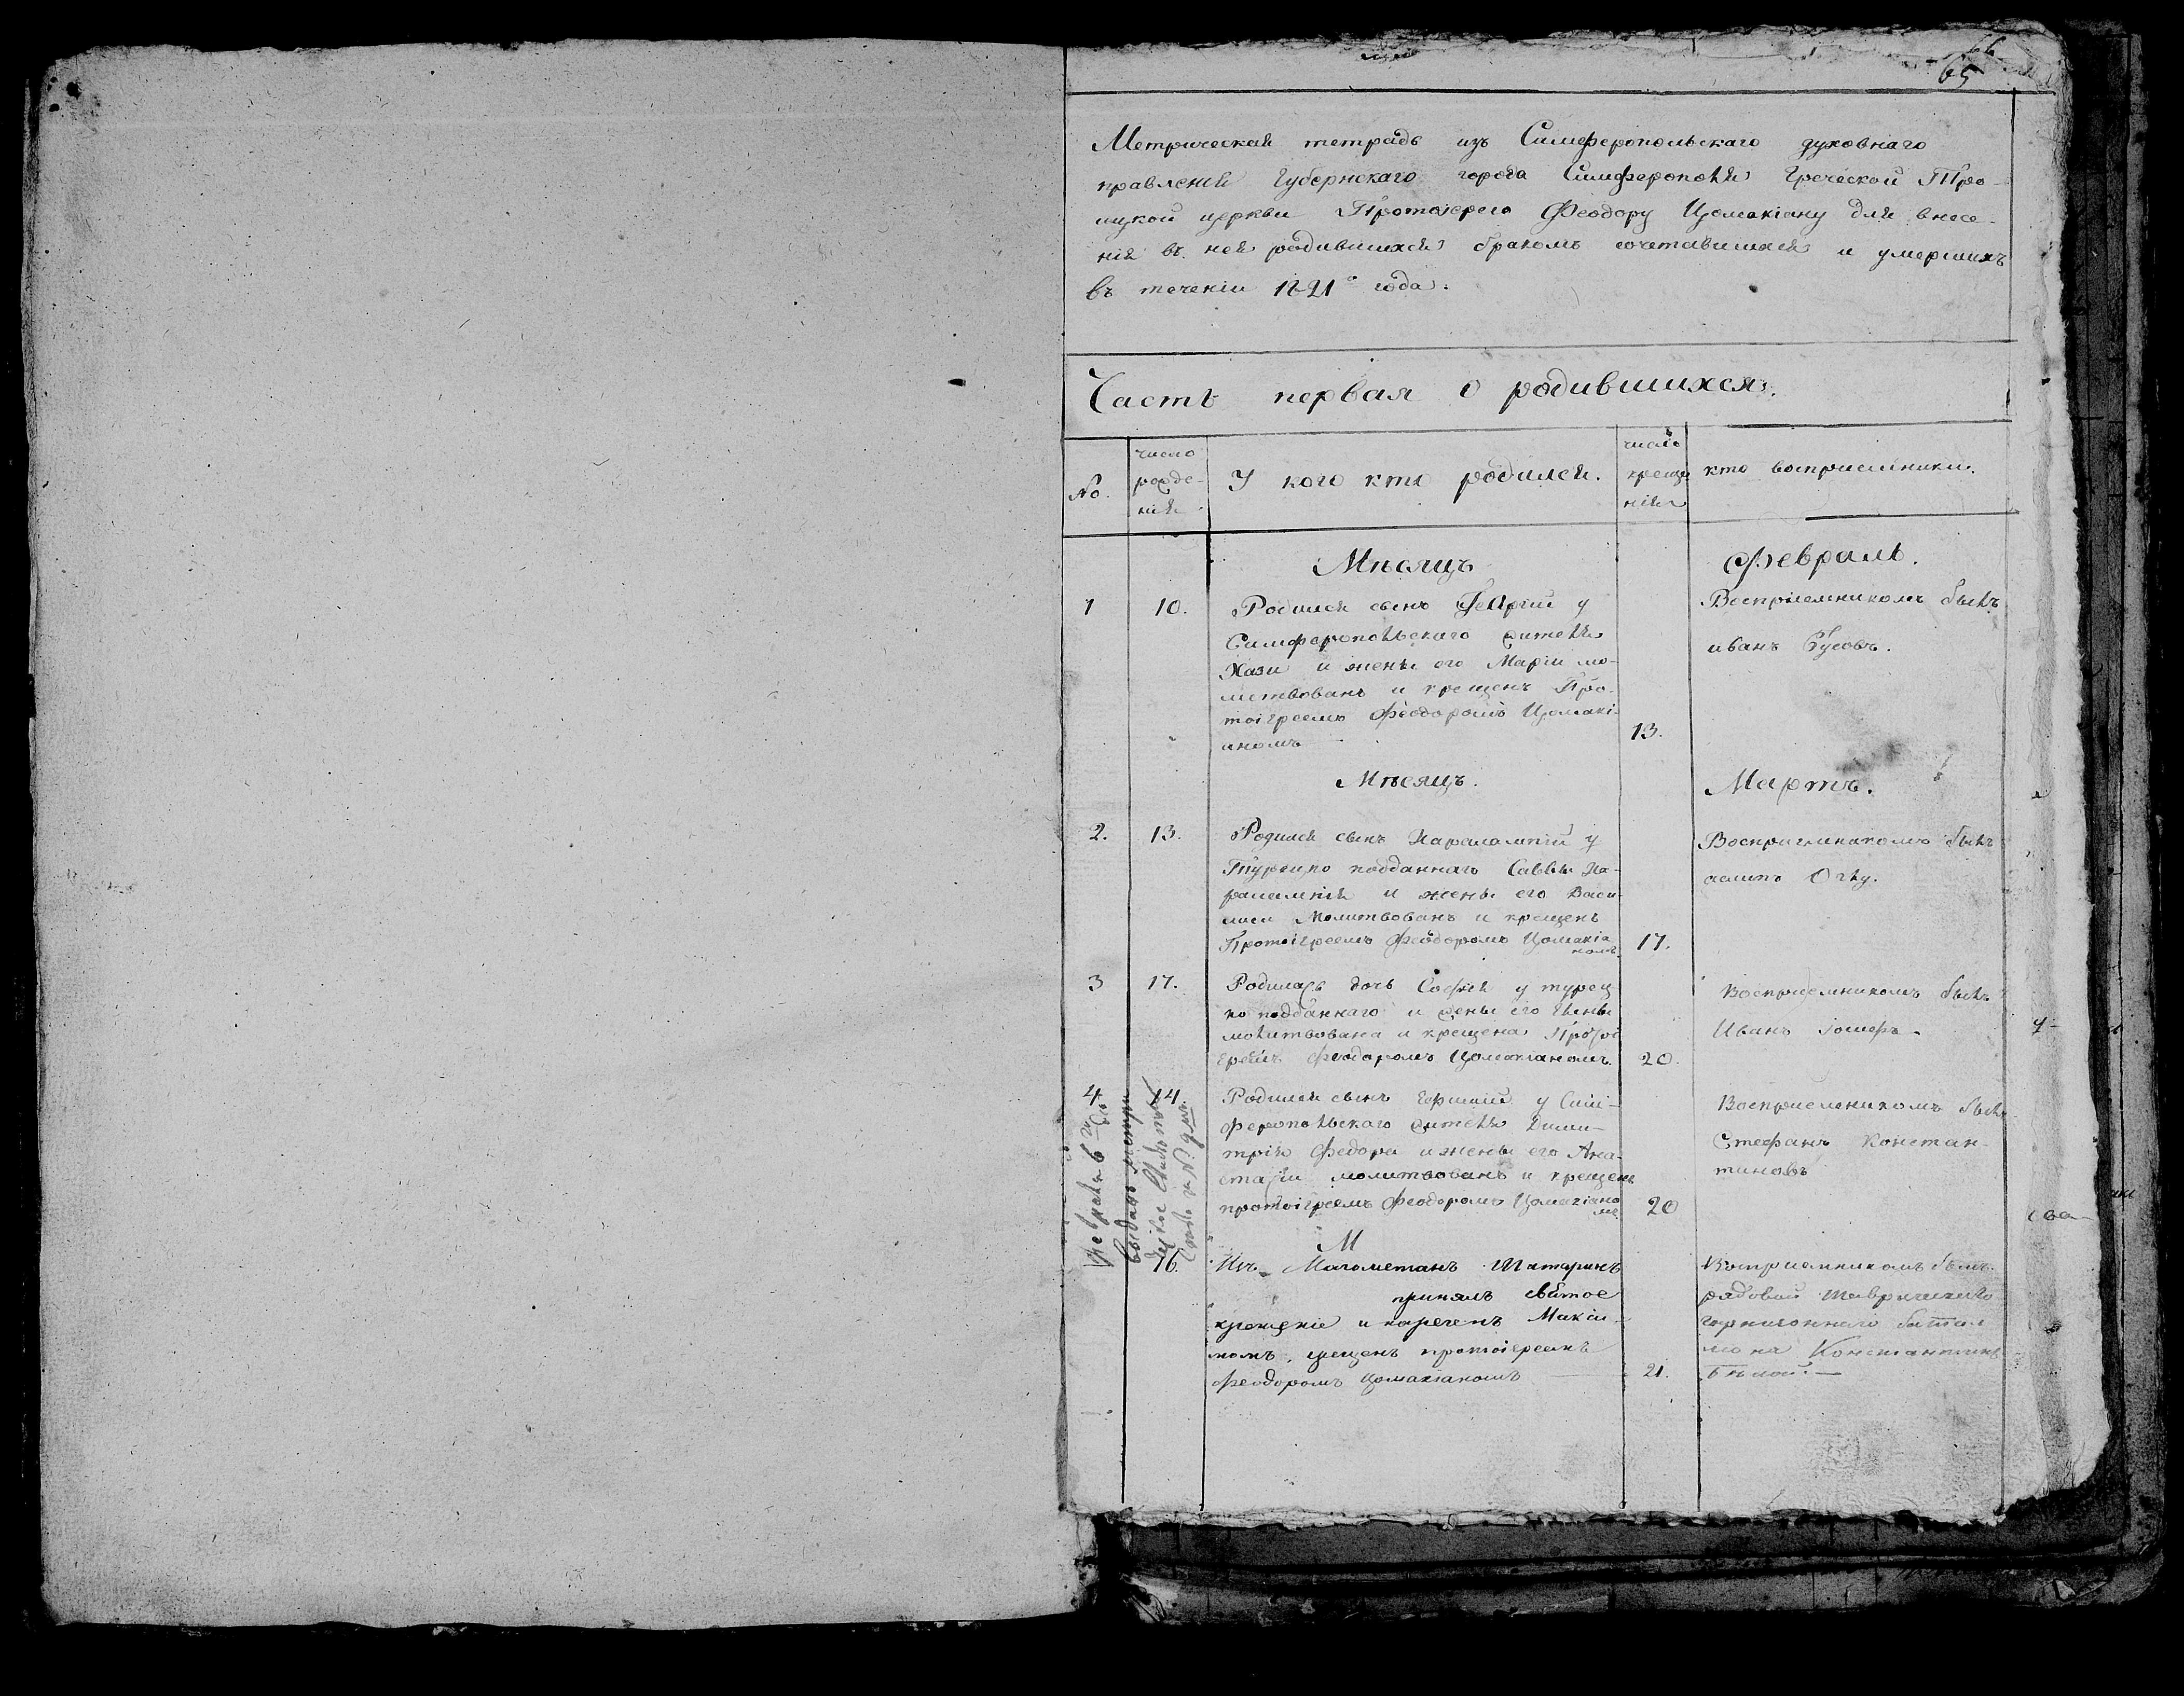 65
Метрическая тетрадь изъ Симферопольскаго духовнаго
правленія Губернскаго города Симферополя Греческой Тро-
ицкой церкви Протоіерею Феодору Цомакіану для внесе-
нія въ ней родившихся бракомъ сочетавшихся и умершихъ
въ теченіи 1821º года.
Часть первая о родившихся.
No. число рожде- нія У кого кто родился. число креще нія кто восприемники.
Мѣсяцъ Февраль.
1 10. Родился сынъ Георгій у
Симферопольскаго жителя
Хази и жены его Маріи мо-
литвованъ и крещенъ Про-
тоіереемъ Феодоромъ Цомакі-
аномъ 13.
Восприемникомъ былъ
иванъ Русовъ.
Мѣсяцъ. Мартъ.
2. 13. Родился сынъ Харалампій у
Турецко подданнаго Саввы Ха-
ралампія и жены его Васи-
лиси Молитвованъ и крещенъ
Протоіереемъ Феодоромъ Цомакіа
номъ. 17.
Восприемникомъ былъ
3 17. Родилась дочь Софія у турец
ко подданнаго и жены его Елены
молитвована и крещена Протоі
ереемъ Феодоромъ Цомакіаномъ. 20.
Восприемникомъ былъ
Иванъ
4 14. Родился сынъ у Сим-
феропольскаго жителя Дими-
трія Федора и жены его Ана-
стасіи молитвованъ и крещенъ
протоіереемъ Феодоромъ Цомакіано
мъ. 20
Восприемникомъ былъ
Стефанъ Констан-
тиновъ
М
16. Изъ Магометанъ Татаринъ
принялъ святое
крещеніе и нареченъ Макси-
момъ, крещенъ протоіереемъ
Феодоромъ Цомакіаномъ 21.
Восприемникомъ былъ
рядовой Таврическаго
гарнизоннаго батал
іона Константинъ
Бѣлой